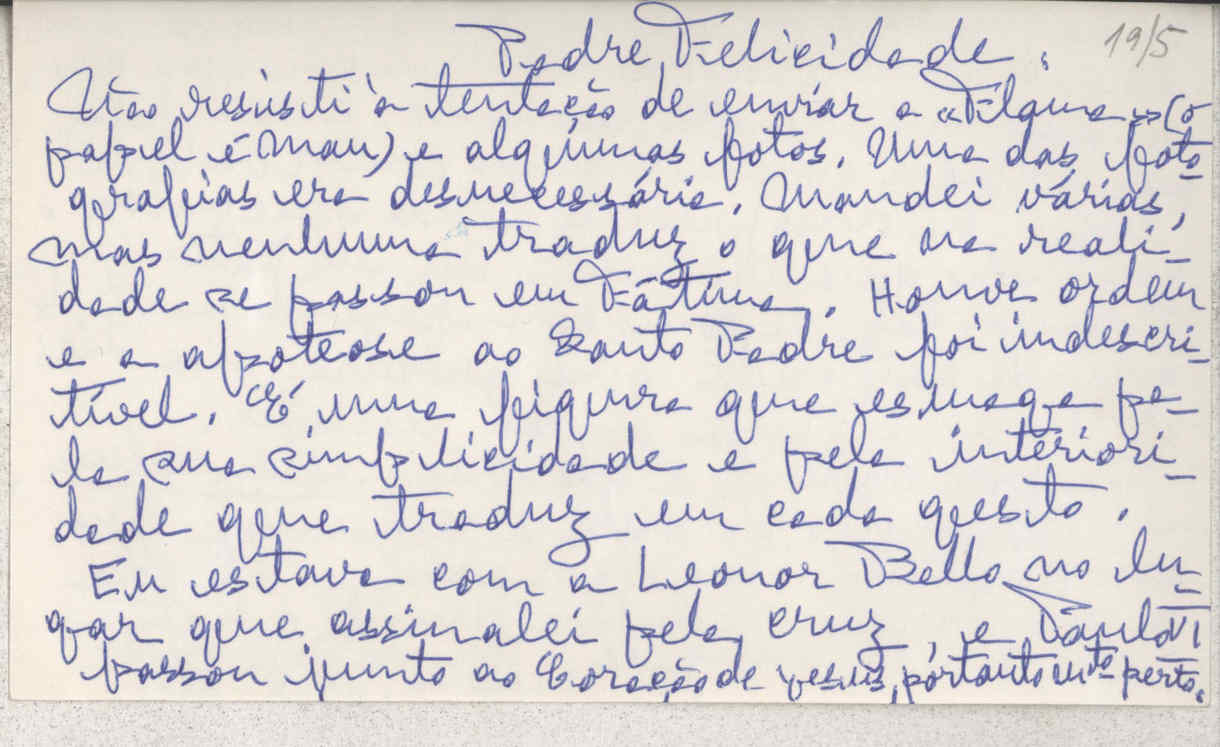 Padre Felicidade. 19/5
Não resisti à tentação de enviar a «Flama» (o
papel é mau) e algumas fotos. Uma das foto-
grafias era desnecessária. Mandei várias,
mas nenhuma traduz o que na reali-
dade se passou em Fátima. Houve ordem
e a apoteose ao Santo Padre foi indescri-
tível. É uma figura que esmaga pe-
la sua simplicidade e pela interiori-
dade que traduz em cada gesto.
Eu estava com a Leonor Bello no lu-
gar que assinalei pela cruz, e Paulo VI
passou junto ao Coração de Jesus, portanto mto perto.